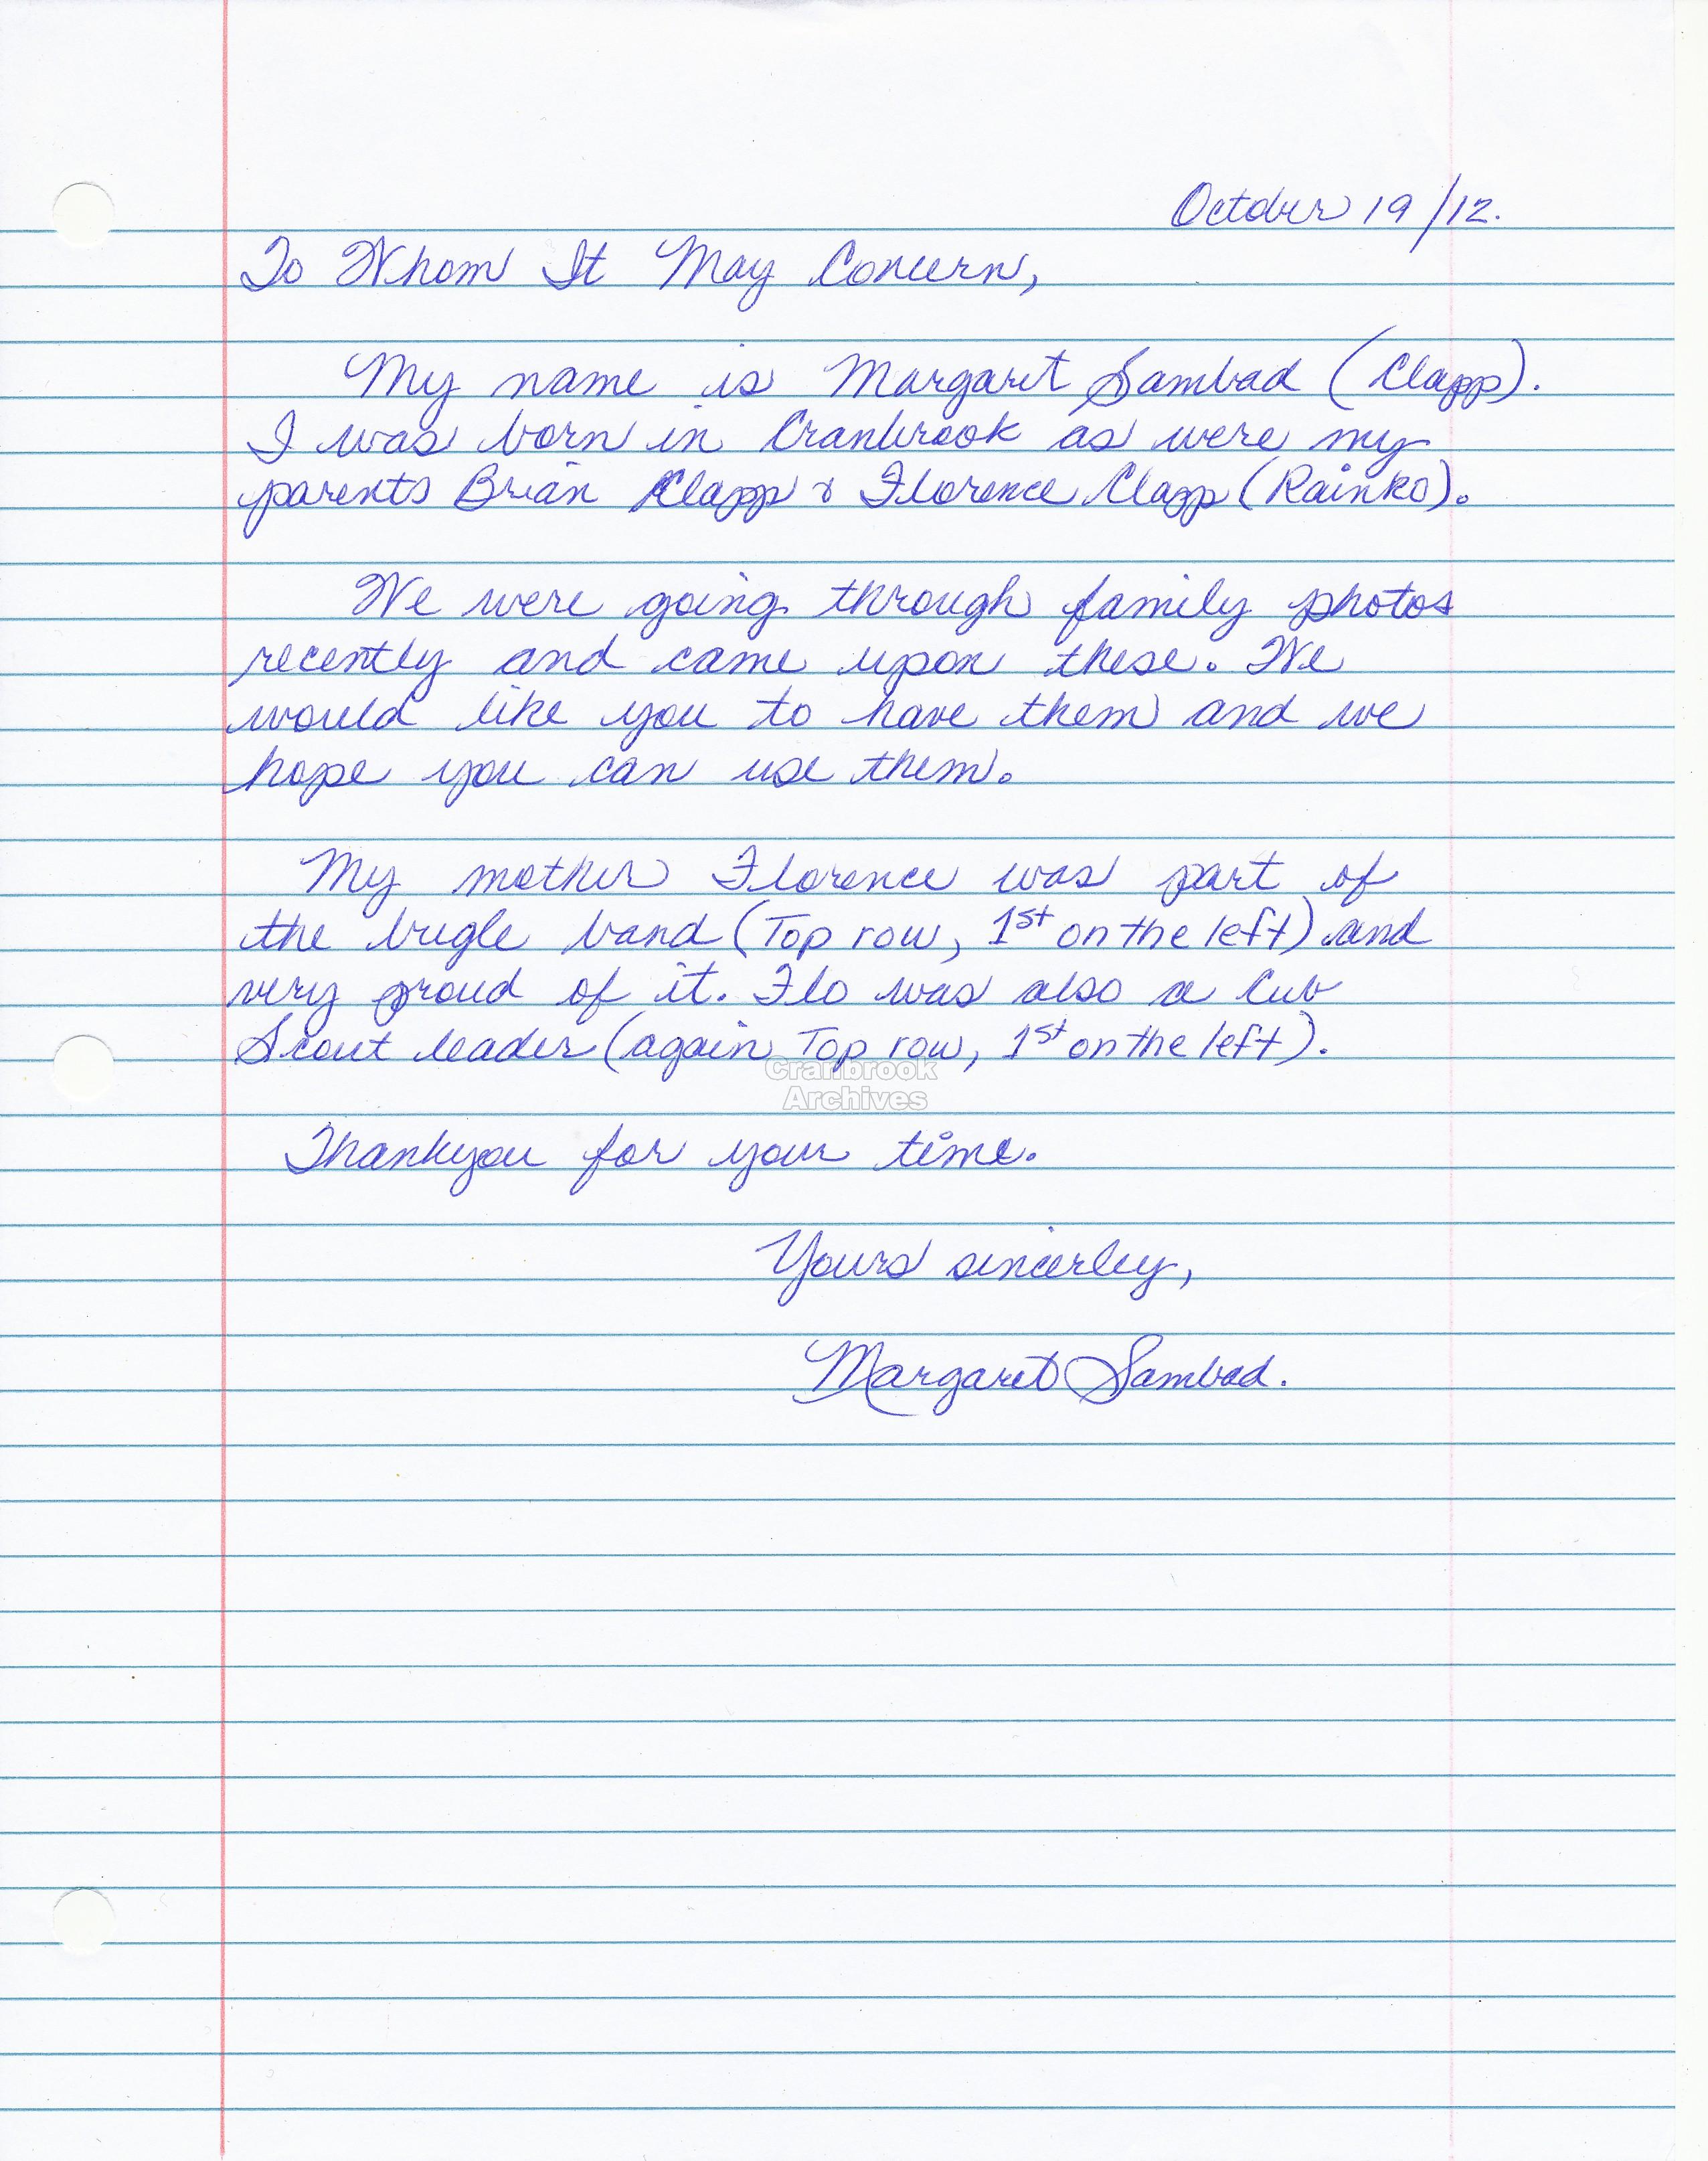 October 19/12.
To Whom It May Concern,
My name is Margaret Sambad (Clapp).
I was born in Cranbrook as were my
parents Brian Clapp & Florence Clapp (Rainko).
We were going through family photos
recently and came upon these. We
would like you to have them and we
hope you can use them.
My mother Florence was part of
the bugle band (Top row, 1st on the left) and
very proud of it. Flo was also a Cub
Scout leader (again Top row, 1st on the left).
Cranbrook
Archives
Thankyou for your time.
Yours sincerley,
Margaret Sambad.